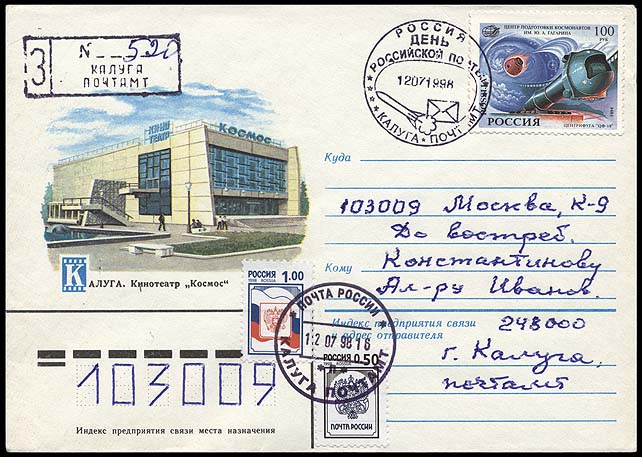 З
N 520
КАЛУГА
ПОЧТАМТ
РОССИЯ
ДЕНЬ
РОССИЙСКОЙ ПОЧТЫ
12071998
КАЛУГА ПОЧТАМТ
ЦЕНТР ПОДГОТОВКИ КОСМОНАВТОВ
ИМ. Ю. А. ГАГАРИНА
100
РУБ
РОССИЯ
ЦЕНТРИФУГА "ЦФ-18"
КИНО
ТЕАТР
КОСМОС
КАЛУГА. Кинотеатр „Космос"
Куда
103009 Москва, К-9
До востреб.
Кому
Константинову
Ал-ру Иванов.
Индекс предприятия связи
и адрес отправителя
248000
г. Калуга,
почтамт
РОССИЯ 1.00
1998 ROSSIJA
ПОЧТА РОССИИ
12 07 98 16
КАЛУГА ПОЧТАМТ
РОССИЯ 0.50
ПОЧТА РОССИИ
103009
Индекс предприятия связи места назначения